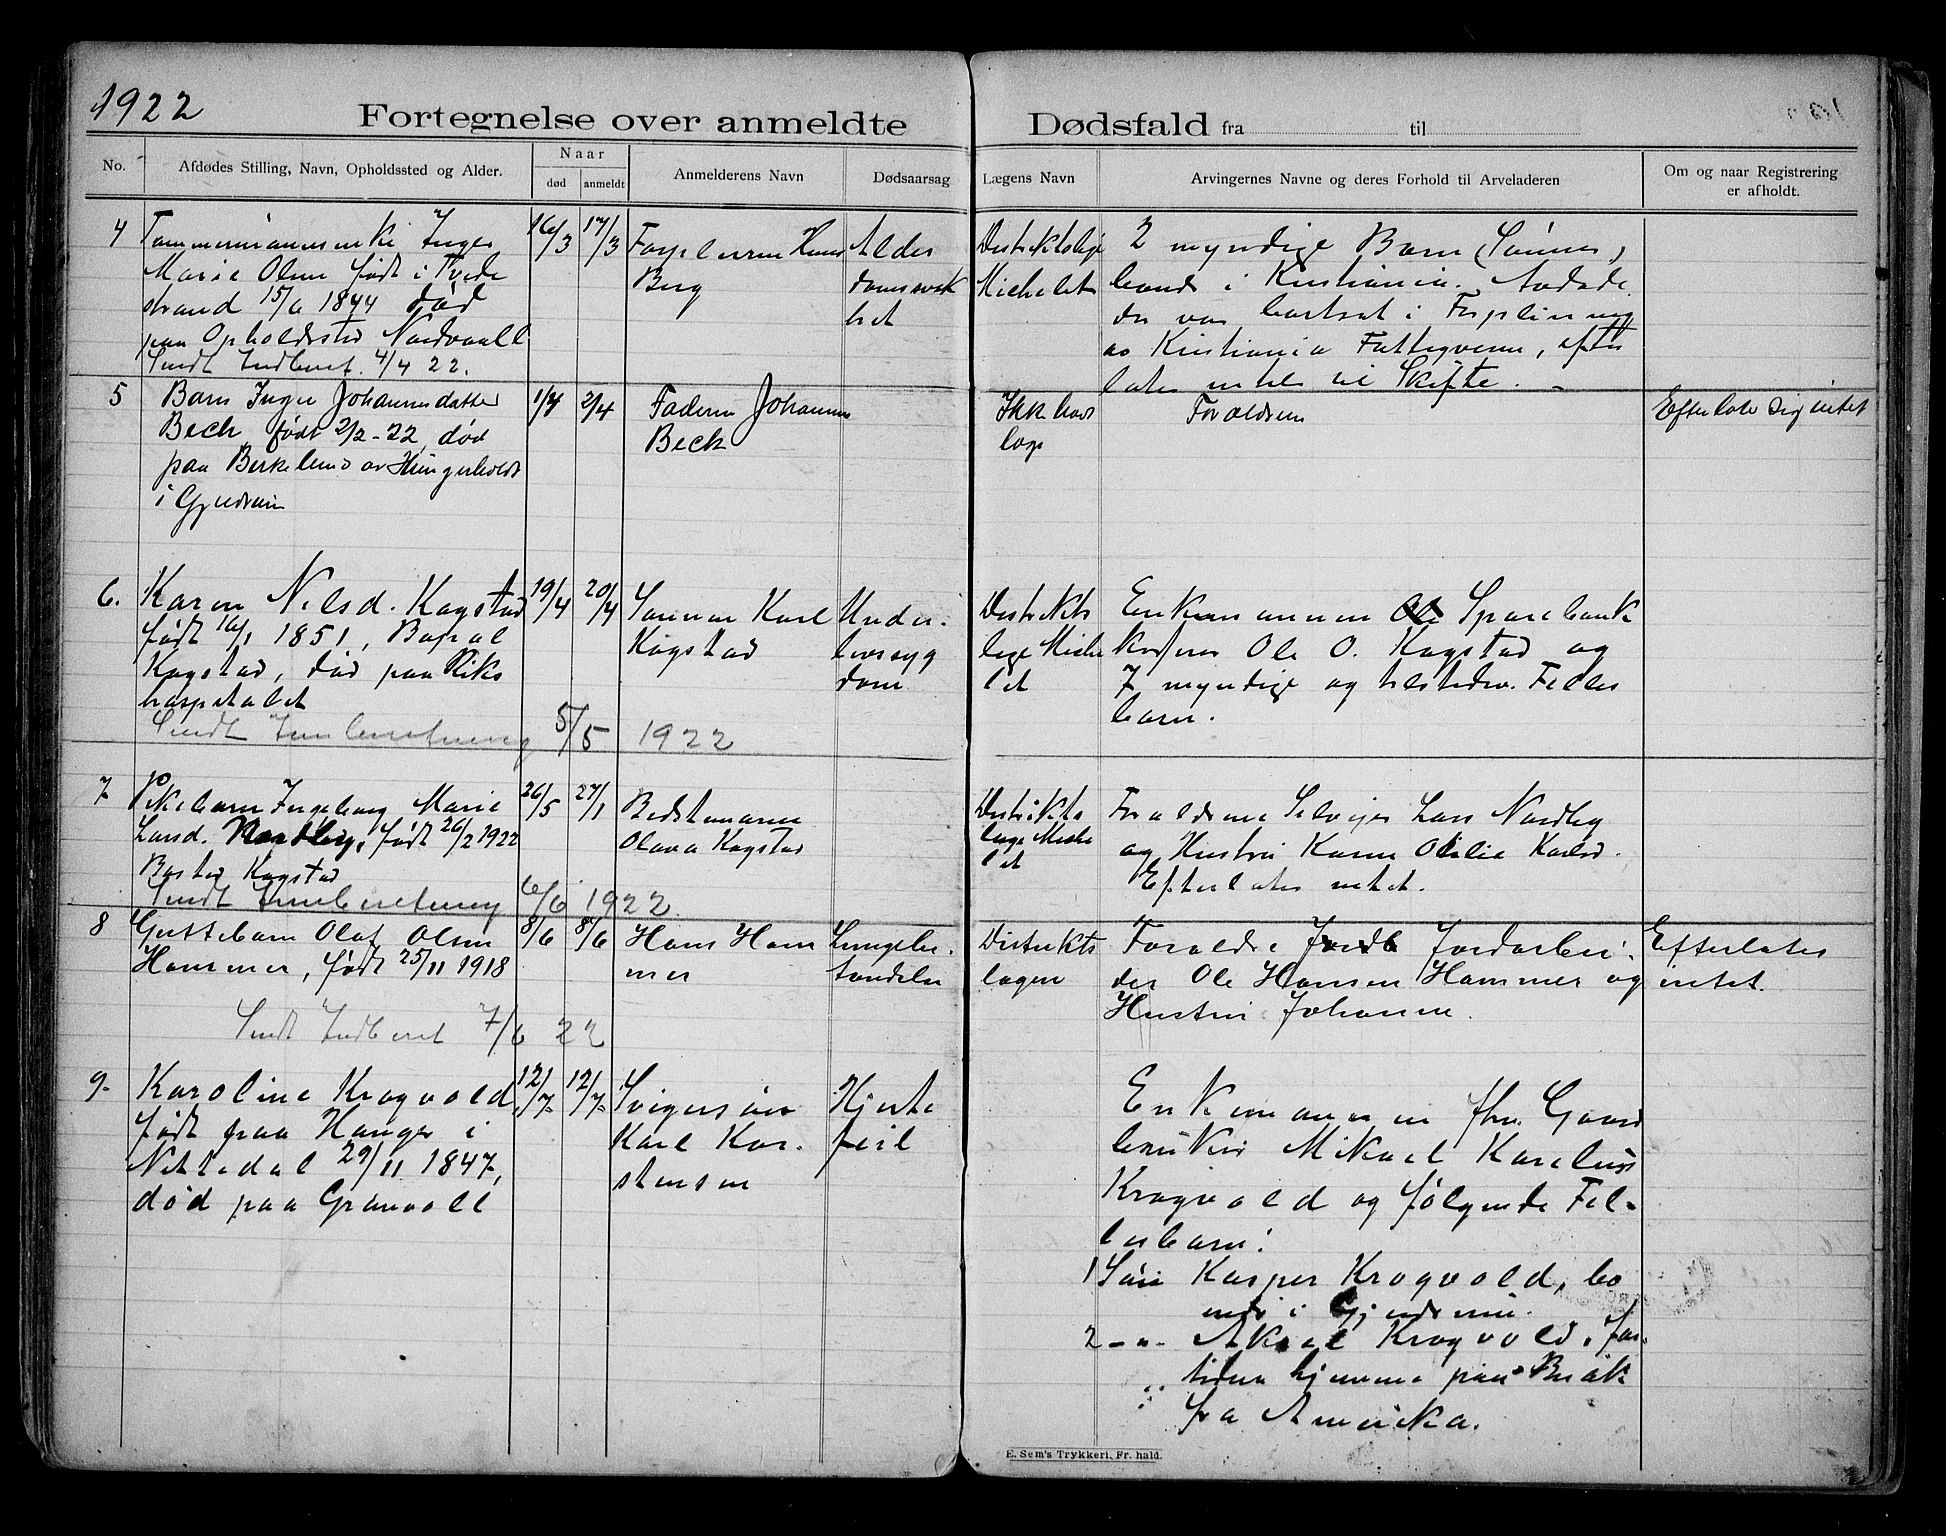 1922
Fortegnelse over anmeldte Dødsfald fra til
No.
Afdødes Stilling, Navn, Opholdssted og Alder.
Naar
død
anmeldt
Anmelderens Navn
Dødsaarsag
Lægens Navn
Arvingernes Navne og deres Forhold til Arveladeren
Om og naar Registrering
er afholdt.
4
Tømmermandsenke Inger
Marie Olsen født i Tvede
strand 15/6 1844 død
paa Opholdssted Nordvoll
Sendt Indberet. 4/4 22.
16/3
17/3
Forpleieren Hans
Berg
Alder
domssvak
het
Distriktslæge
Michelet
2 myndige Barn (Sønner)
boende i Kristiania. Avdøde
der var bortsat i Forpleining
av Kristiania Fattigvesen, efter
later intet til Skifte.
5
Barn Inger Johannesdatter
Beck, født 2/2-22, død
paa Birkelund av
i Gjerdrum
1/4
2/4
Faderen Johannes
Beck
Ikke havt
læge
Forældrene
Efterlater sig intet
6.
Karen Nilsd. Kogstad
født 16/1 1851, Bopæl
Kogstad, død paa Riks
hospitalet
Sendt Innberetning 5/5 1922
19/4
20/4
Sønnen Karl
Kogstad
Under-
livssyg
dom
Distrikts
læge Miche
let
Enkemannen Ole Sparebank
kasserer Ole O. Kogstad og
7 myndige og tilstedev. Felles
barn.
7
Pikebarn Ingeborg Marie
Larsd. Nordby, født 26/2 1922
Bosted Kogstad
Sendt Innberetning 6/6 1922.
26/5
27/1
Bedstemoren
Olava Kogstad
Distrikts
læge Miche
let
Forældrene Selveier Lars Nordby
og Hustru Karen Otilie Karlsd.
Efterlater intet.
8
Guttebarn Olaf Olsen
Hammer, født 25/11 1918
Sendt Indberet 7/6 22
8/6
8/6
Hans Ham
mer
Lungebe-
tændelse
Distrikts
lægen
Forældre Jordb Jordarbei-
der Ole Hansen Hammer og
Hustru Johanne.
Efterlates
intet.
9-
Karoline Krogvold,
født paa Hauger i
Nittedal 29/11 1847,
død paa Granvoll
12/7
12/7
Svigersøn
Karl Kar-
stensen
Hjerte
feil
Enkemannen fhv. Gaard
bruker Mikael Karelius
Krogvold og følgende Fel-
lesbarn:
1 Søn Kasper Krogvold, bo
ende i Gjerdrum.
2 -"- Aksel Krogvold, for-
tiden hjemme paa Besøk
fra Amerika.
E. Sem's Trykkeri, Fr. hald.